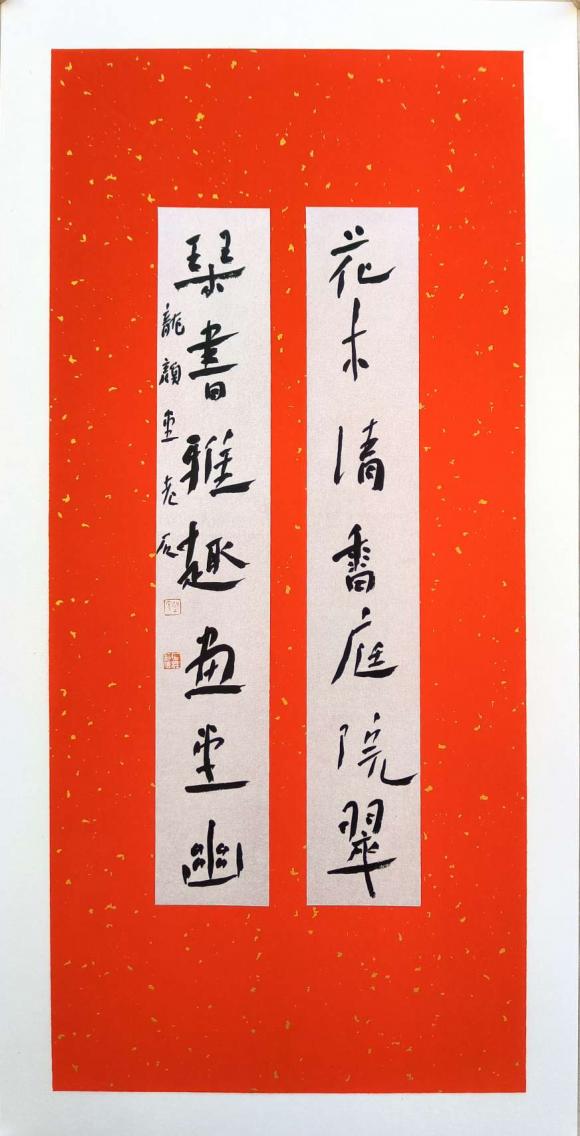 花木清香庭院翠
琴書雅趣画堂幽
龍顏堂老辰